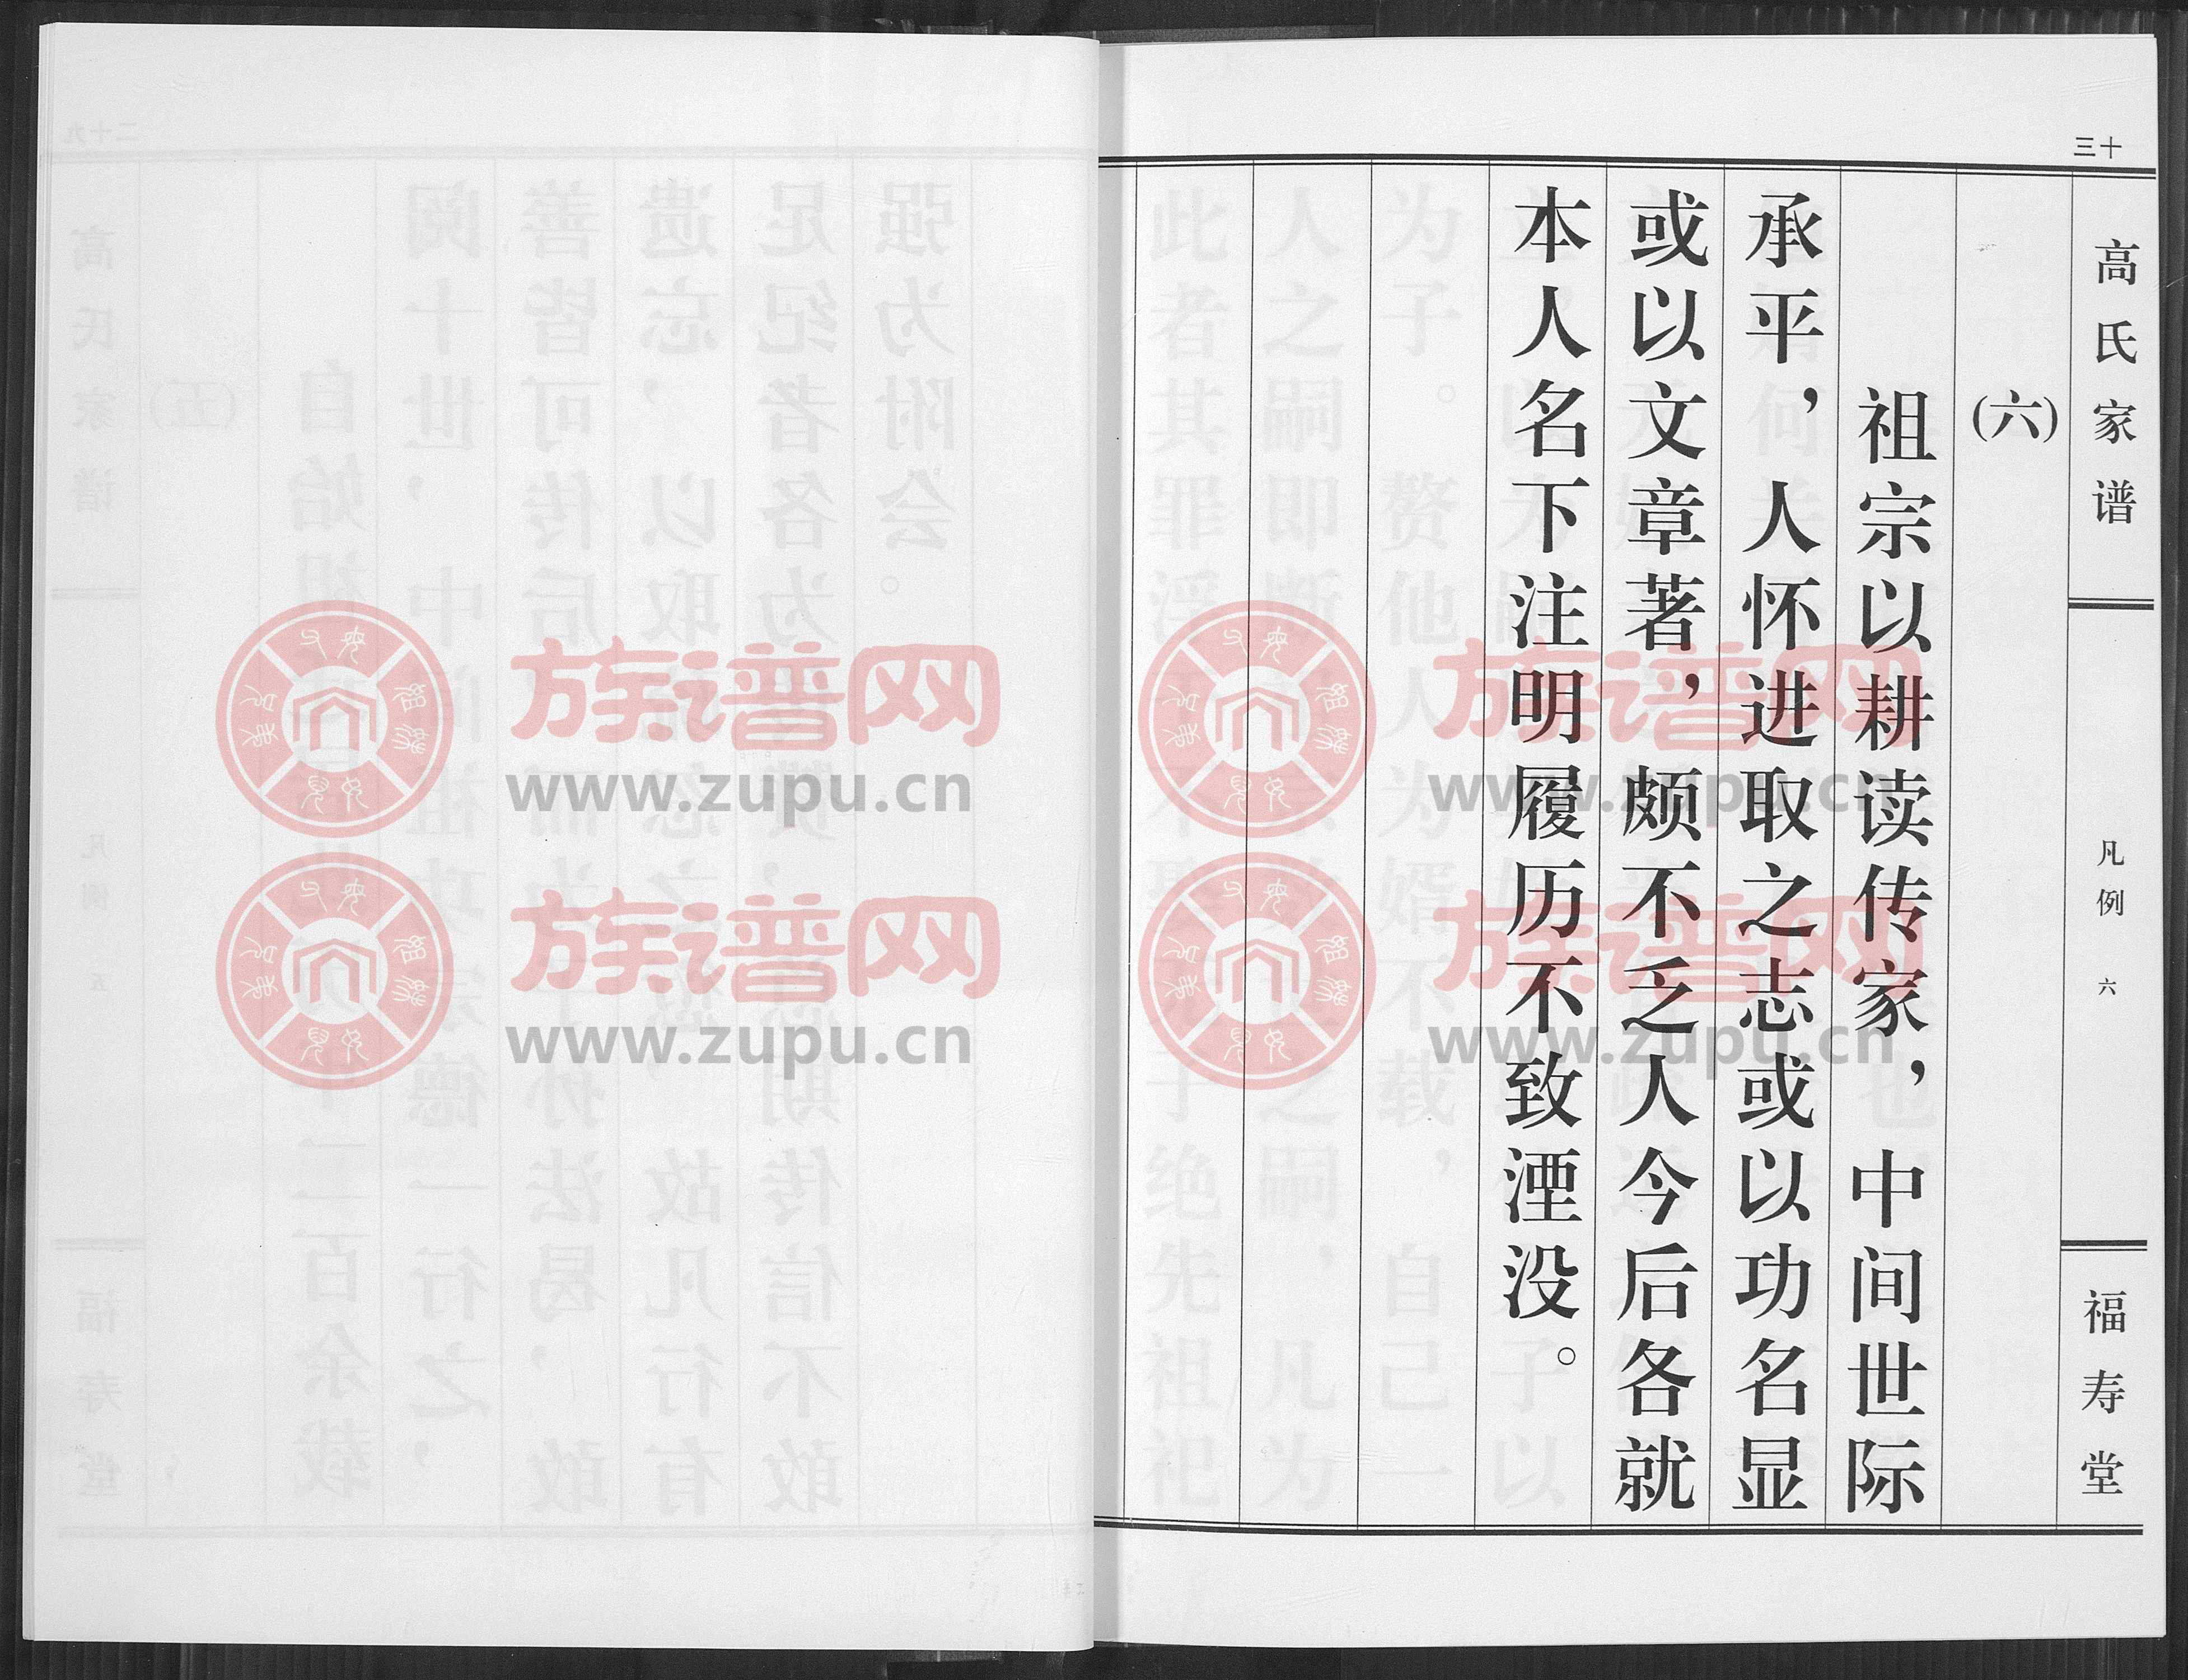 三十
高氏家谱
凡例 六
福寿堂
(六)
祖宗以耕读传家，中间世际
承平，人怀进取之志或以功名显
或以文章著，颇不乏人今后各就
本人名下注明履历不致湮没。
族谱网
www.zupu.cn
族谱网
www.zupu.cn
族谱网
www.zupu.cn
族谱网
www.zupu.cn